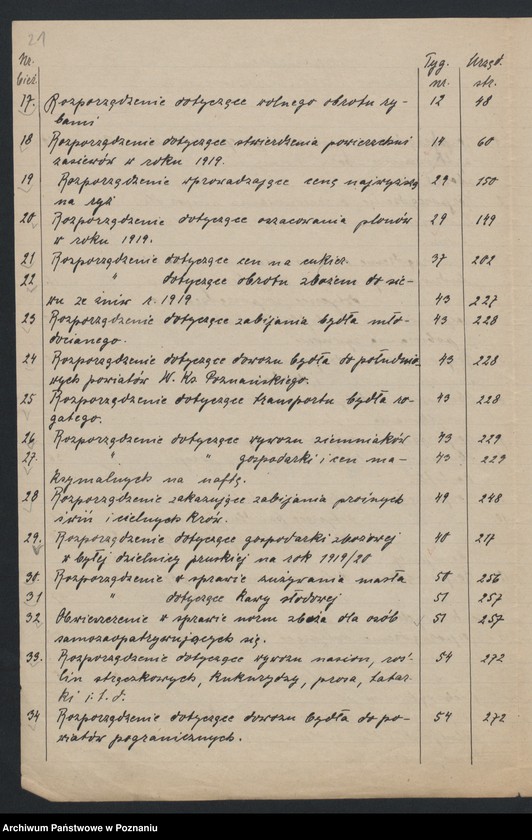 21
Nr. bież. Tyg. nr. Urzęd. str.
17. Rozporządzenie dotyczące wolnego obrotu ry- 12 48
bami
18 Rozporządzenie dotyczące stwierdzenia powierzchni 14 60
zasiewów w roku 1919.
19 Rozporządzenie wprowadzające cenę najwyższą 29 150
na ryż
20 Rozporządzenie dotyczące oszacowania plonów 29 149
w roku 1919.
21 Rozporządzenie dotyczące cen na cukier. 37 202
22 " dotyczące obrotu zbożem do sie-
wu ze żniw r. 1919 43 227
23 Rozporządzenie dotyczące zabijania bydła mło- 43 228
docianego.
24 Rozporządzenie dotyczące dowozu bydła do południo- 43 228
wych powiatów W. Ks. Poznańskiego.
25 Rozporządzenie dotyczące transportu bydła ro- 43 228
gatego.
26 Rozporządzenie dotyczące wywozu ziemniaków 43 229
27. " " gospodarki i cen ma- 43 229
ksymalnych na naftę.
28 Rozporządzenie zakazujące zabijania prośnych 49 248
świń i cielnych krów.
29. Rozporządzenie dotyczące gospodarki zbożowej 40 217
w byłej dzielnicy pruskiej na rok 1919/20
30. Rozporządzenie w sprawie zużywania masła 50 256
31 " dotyczące kawy słodowej 51 257
32 Obwieszczenie w sprawie norm zboża dla osób 51 257
samozaopatrywujących się.
33. Rozporządzenie dotyczące wywozu nasion, roś- 54 272
lin strączkowych, kukurydzy, prosa, tatar-
ki i.t.d.
34 Rozporządzenie dotyczące dowozu bydła do po- 54 272
wiatów pogranicznych.
Archiwum Państwowe w Poznaniu